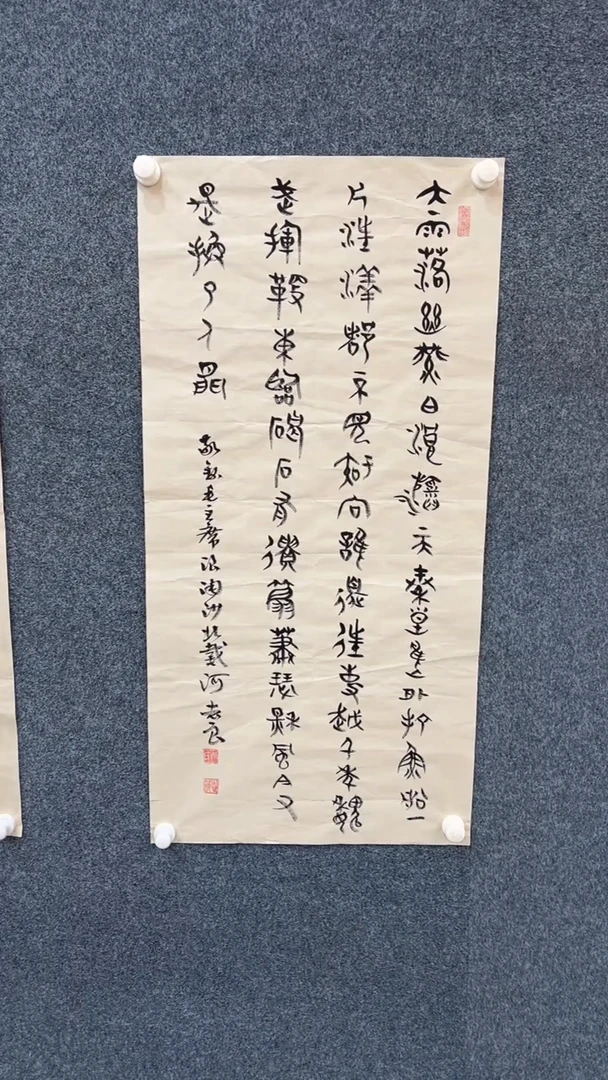 大雨落幽燕白浪滔天秦皇島外打魚船一
片汪洋都不見知向誰邊往事越千年魏
武揮鞭東臨碣石有遺篇蕭瑟秋風今又
是換了人間
敬錄毛主席浪淘沙北戴河